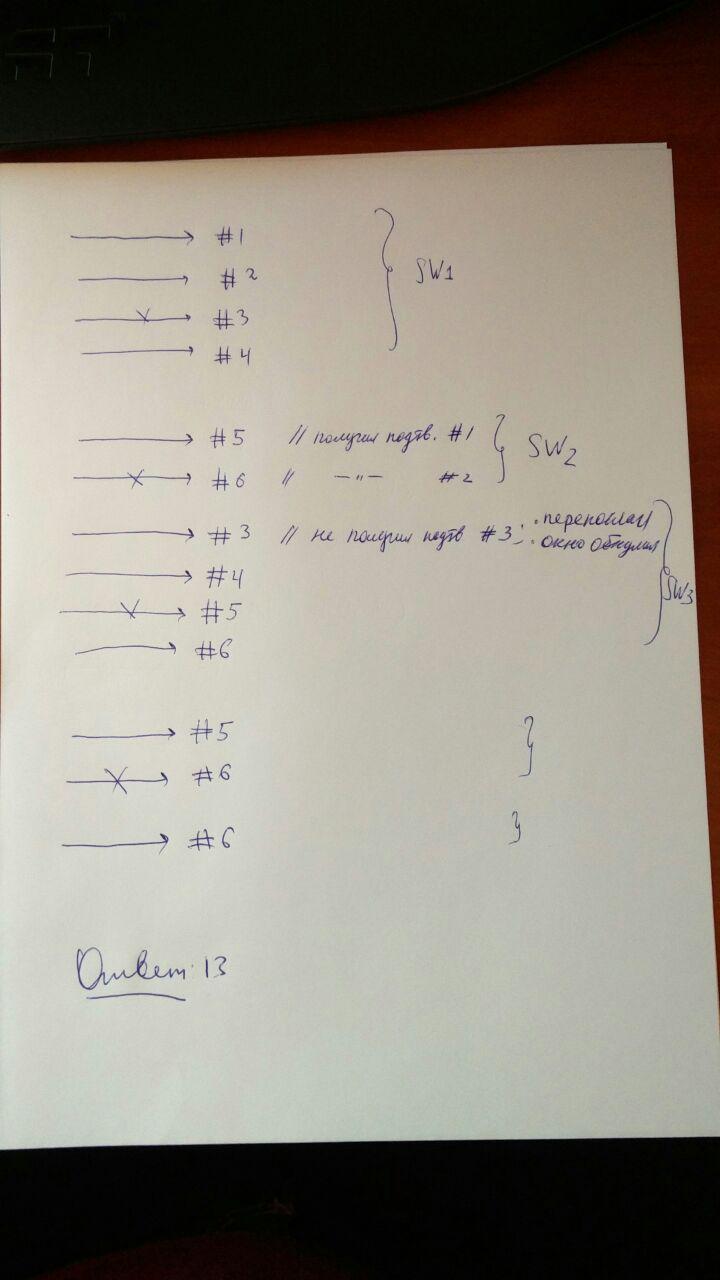 #1
#2
SW1
#3
#4
#5 // получил подтв. #1
SW2
#6 // —"— #2
#3 // не получил подтв #3; · перепослал
· окно обнулил
#4
SW3
#5
#6
#5
#6
#6
Ответ: 13